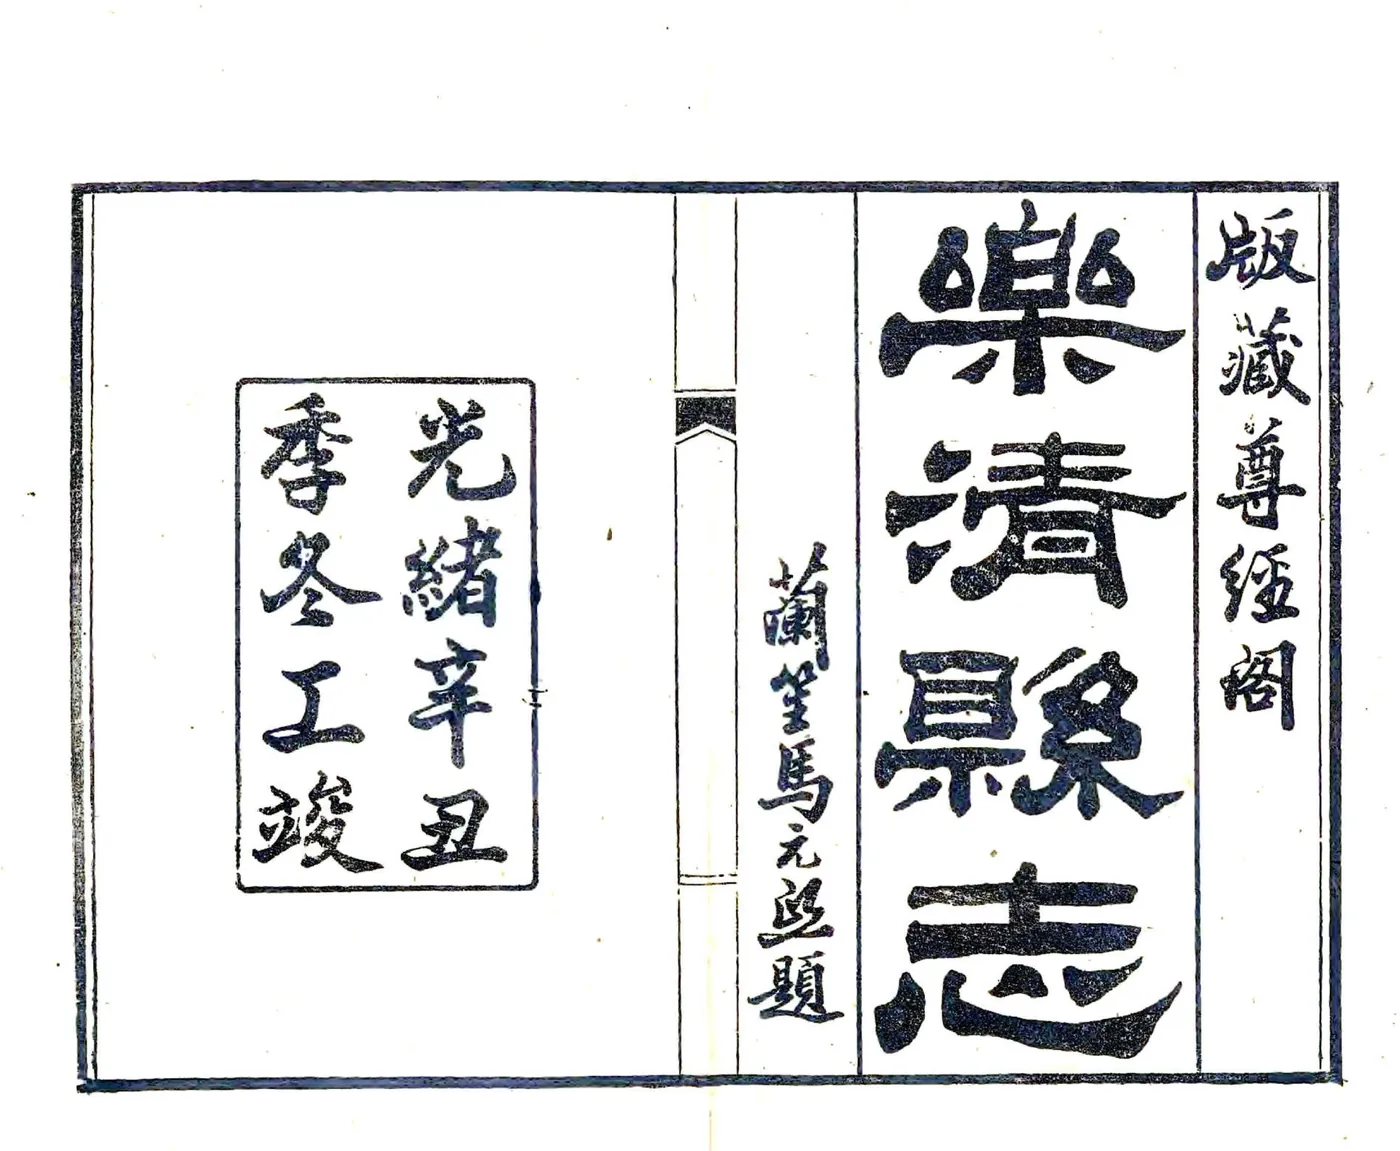 版藏尊經閣
樂清縣志
蘭笙馬元熙題
光緒辛丑
季冬工竣